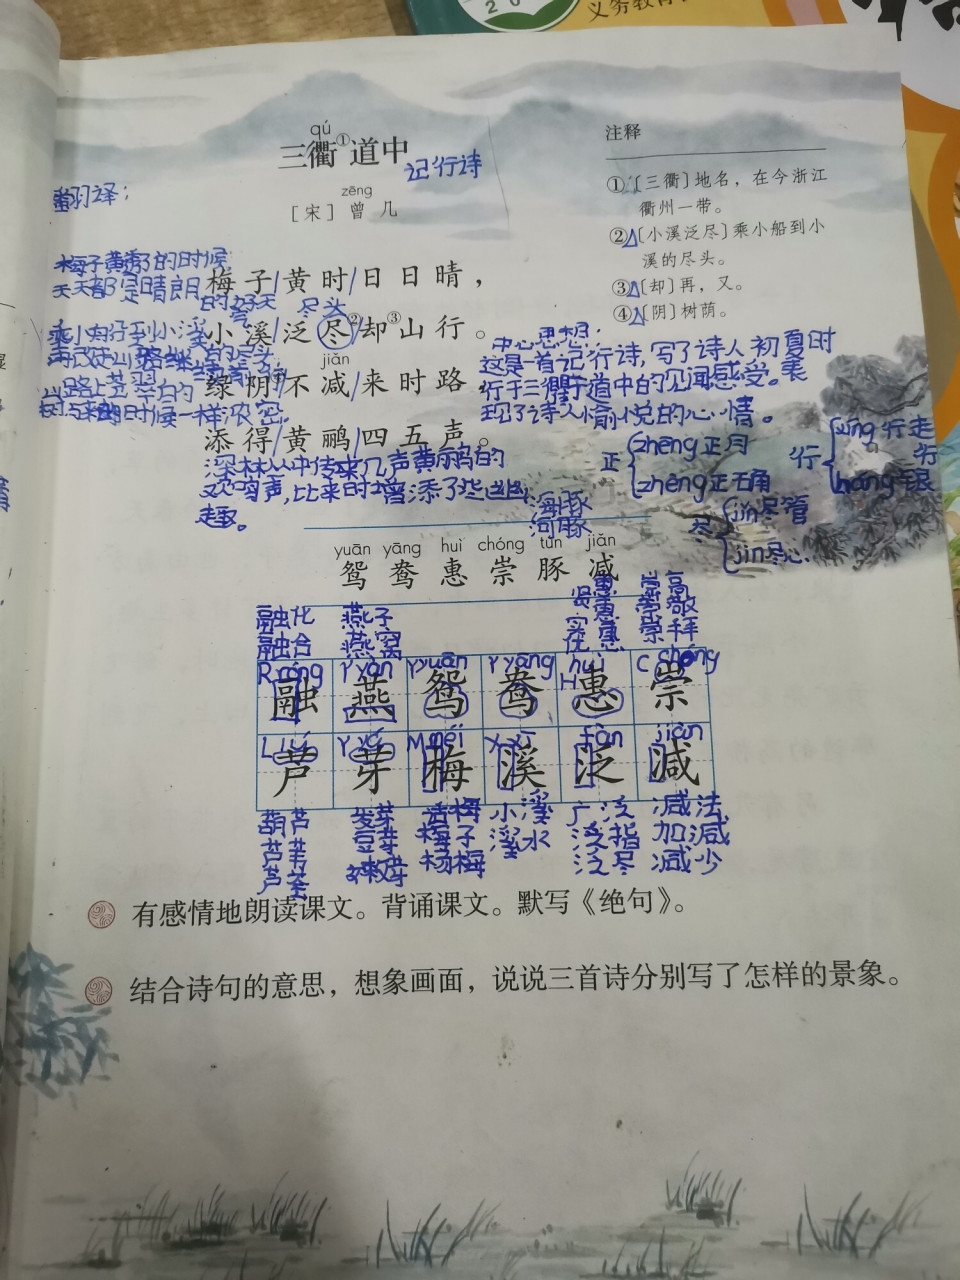 义务教育
qú
三衢①道中
记行诗
zēng
[宋] 曾 几
翻译：
注释
①〔三衢〕地名，在今浙江
衢州一带。
②〔小溪泛尽〕乘小船到小
溪的尽头。
③〔却〕再，又。
④〔阴〕树荫。
梅子黄透了的时候
天天都是晴朗
的好天
梅子/黄时/日日晴，
尽头
小溪/泛尽②却③山行。
乘小船行到小溪
jiǎn
绿阴/不减/来时路，
添得/黄鹂/四五声。
深林丛中传来几声黄鹂的
欢鸣声，比来时增添了些幽
趣。
中心思想：
这是一首记行诗，写了诗人初夏时
行于三衢于道中的见闻感受。表
现了诗人愉小悦的心情。
正 zhēng 正月
zhèng 正确
行 xíng 行走
háng 银行
尽 jǐn 尽管
jìn 尽心
海豚
河豚
yuān yāng huì chóng tún jiǎn
鸳 鸯 惠 崇 豚 减
融化 燕子 贤惠 崇高
融合 燕窝 实惠 崇敬
优惠 崇拜
R róng Y yàn Y yuān Y yāng H huì C chóng
融 燕 鸳 鸯 惠 崇
L lú Y yá M méi X xī fàn jiǎn
芦 芽 梅 溪 泛 减
葫芦 发芽 话梅 小溪 广泛 减法
芦苇 豆芽 梅子 溪水 泛指 加减
芦笙 嫩芽 杨梅 泛尽 减少
有感情地朗读课文。背诵课文。默写《绝句》。
结合诗句的意思，想象画面，说说三首诗分别写了怎样的景象。